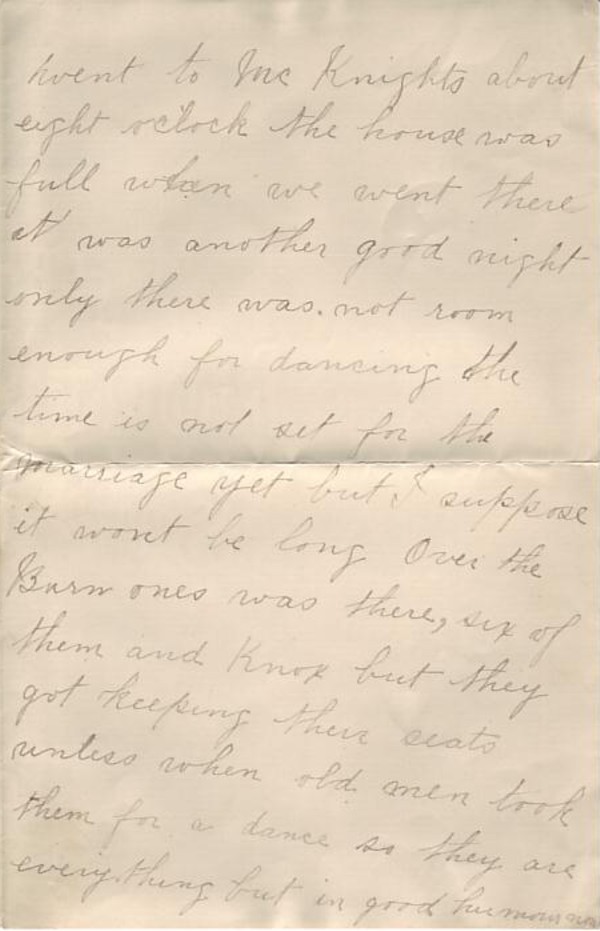 went to Mc Knights about
eight oclock the house was
full when we went there
it was another good night
only there was. not room
enough for dancing the
time is not set for the
marriage yet but I suppose
it wont be long Over the
Burn ones was there, six of
them and Knox but they
got keeping their seats
unless when old men took
them for a dance so they are
everything but in good humour now